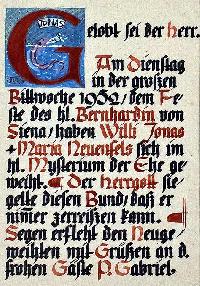 JONAS
Gelobt sei der Herr.
Am Dienstag
in der großen
Bittwoche 1952, dem Fe-
ste des hl. Bernhardin von
Siena, haben Willi Jonas
+ Maria Neuenfels sich im
hl. Mysterium der Ehe ge
weiht. Der Herrgott sie
gelle diesen Bund, daß er
nimer zerreißen kann.
Segen erfleht den Neuge
weihten mit Grüßen an d.
frohen Gäste P. Gabriel.